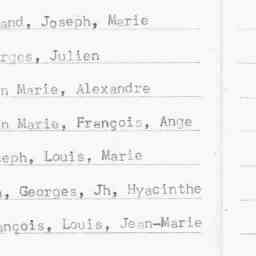 and, Joseph, Marie
rges, Julien
n Marie, Alexandre
n Marie, François, Ange
eph, Louis, Marie
, Georges, Jh, Hyacinthe
nçois, Louis, Jean-Marie